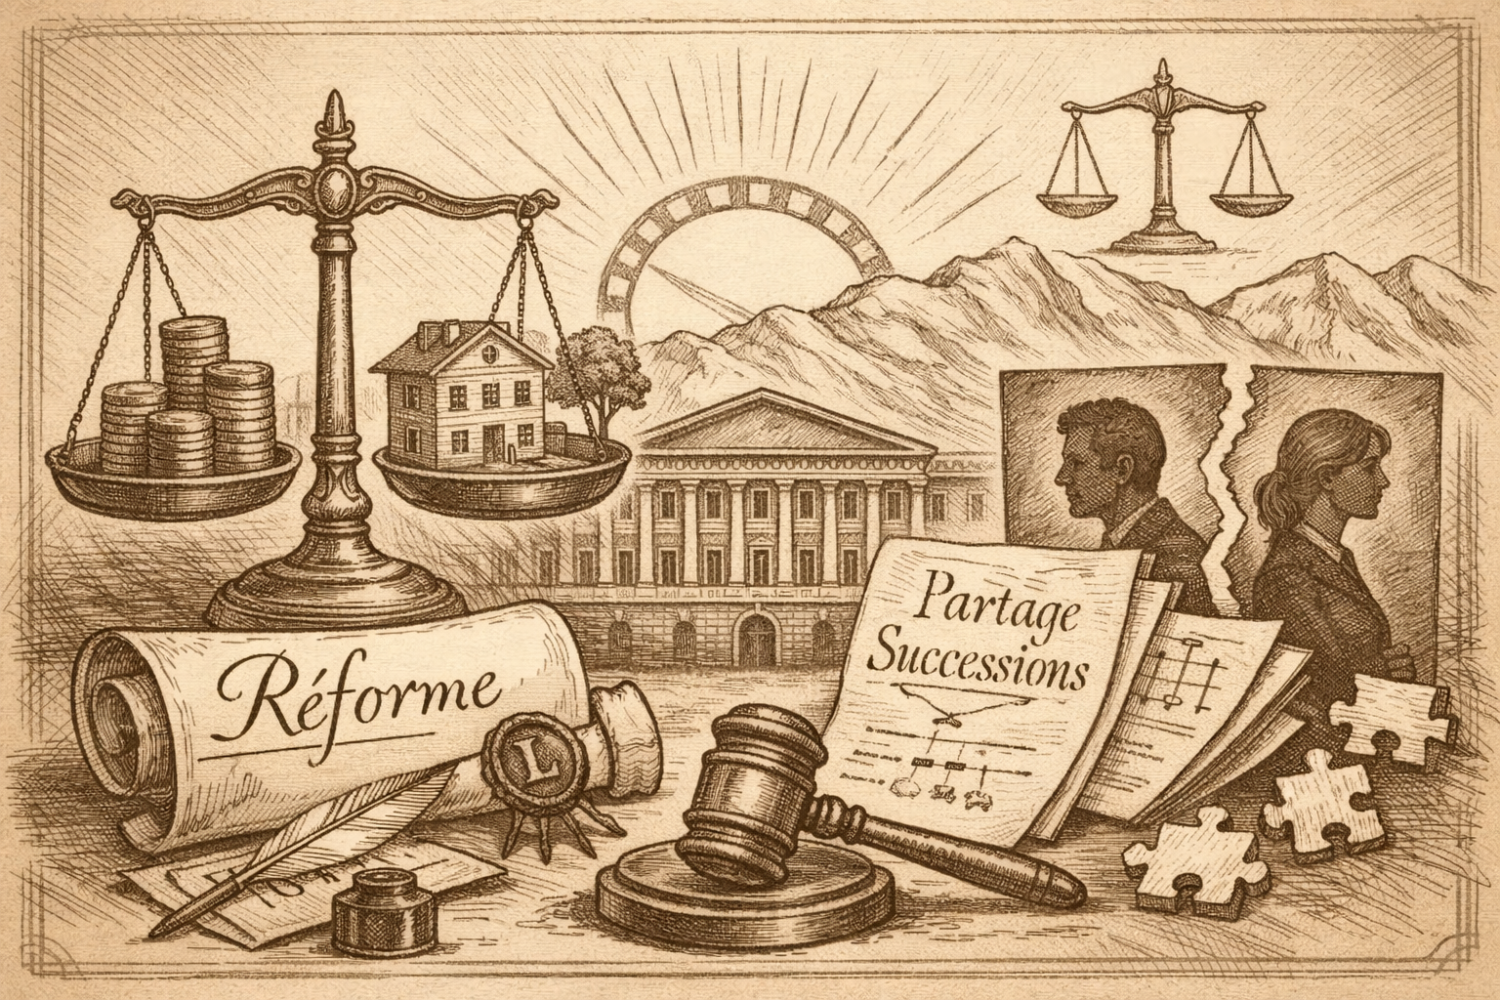 Réforme
L
Partage
Successions